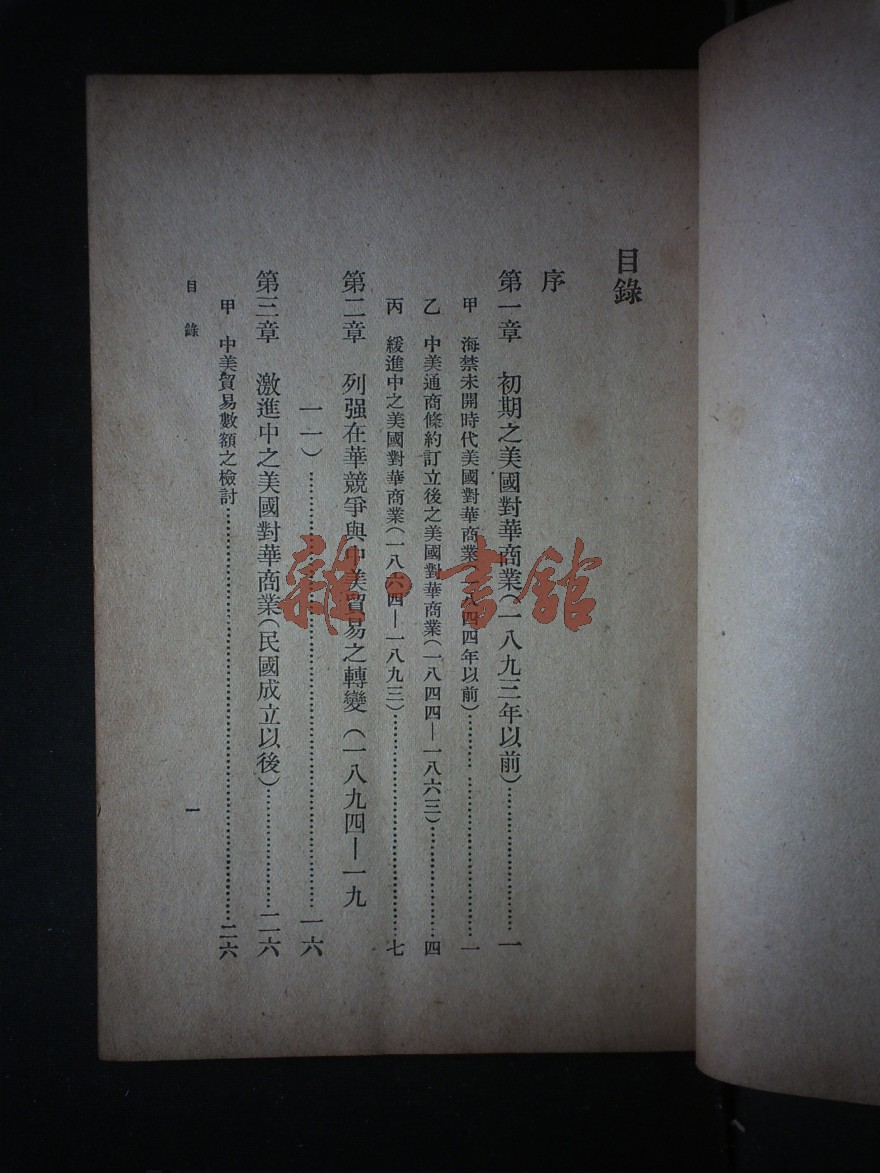 目錄
序
第一章　初期之美國對華商業（一八九三年以前）…………………一
甲　海禁未開時代美國對華商業（一八四四年以前）…………………一
乙　中美通商條約訂立後之美國對華商業（一八四四—一八六三）…………………四
丙　緩進中之美國對華商業（一八六四—一八九三）…………………七
第二章　列强在華競爭與中美貿易之轉變（一八九四—一九
一一）…………………一六
第三章　激進中之美國對華商業（民國成立以後）…………………二六
甲　中美貿易數額之檢討…………………二六
目錄
一
雜·書館